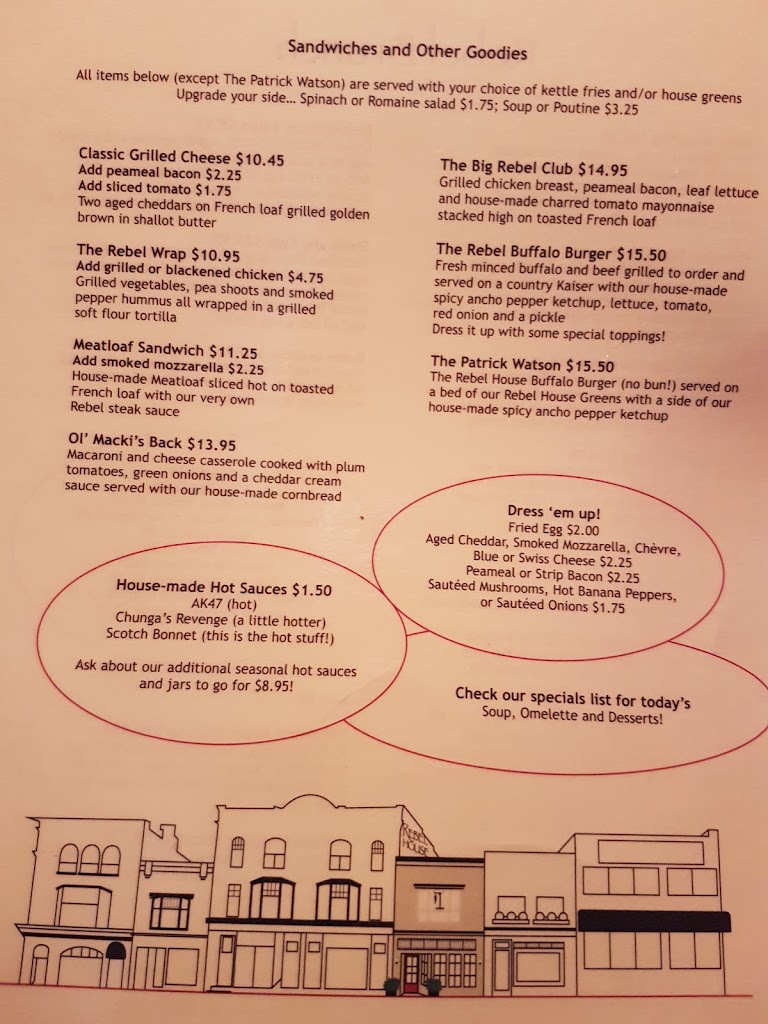 Sandwiches and Other Goodies
All items below (except The Patrick Watson) are served with your choice of kettle fries and/or house greens
Upgrade your side... Spinach or Romaine salad $1.75; Soup or Poutine $3.25
Classic Grilled Cheese $10.45
Add peameal bacon $2.25
Add sliced tomato $1.75
Two aged cheddars on French loaf grilled golden
brown in shallot butter
The Rebel Wrap $10.95
Add grilled or blackened chicken $4.75
Grilled vegetables, pea shoots and smoked
pepper hummus all wrapped in a grilled
soft flour tortilla
Meatloaf Sandwich $11.25
Add smoked mozzarella $2.25
House-made Meatloaf sliced hot on toasted
French loaf with our very own
Rebel steak sauce
Ol' Macki's Back $13.95
Macaroni and cheese casserole cooked with plum
tomatoes, green onions and a cheddar cream
sauce served with our house-made cornbread
The Big Rebel Club $14.95
Grilled chicken breast, peameal bacon, leaf lettuce
and house-made charred tomato mayonnaise
stacked high on toasted French loaf
The Rebel Buffalo Burger $15.50
Fresh minced buffalo and beef grilled to order and
served on a country Kaiser with our house-made
spicy ancho pepper ketchup, lettuce, tomato,
red onion and a pickle
Dress it up with some special toppings!
The Patrick Watson $15.50
The Rebel House Buffalo Burger (no bun!) served on
a bed of our Rebel House Greens with a side of our
house-made spicy ancho pepper ketchup
Dress 'em up!
Fried Egg $2.00
Aged Cheddar, Smoked Mozzarella, Chèvre,
Blue or Swiss Cheese $2.25
Peameal or Strip Bacon $2.25
Sautéed Mushrooms, Hot Banana Peppers,
or Sautéed Onions $1.75
House-made Hot Sauces $1.50
AK47 (hot)
Chunga's Revenge (a little hotter)
Scotch Bonnet (this is the hot stuff!)
Ask about our additional seasonal hot sauces
and jars to go for $8.95!
Check our specials list for today's
Soup, Omelette and Desserts!
REBEL
HOUSE